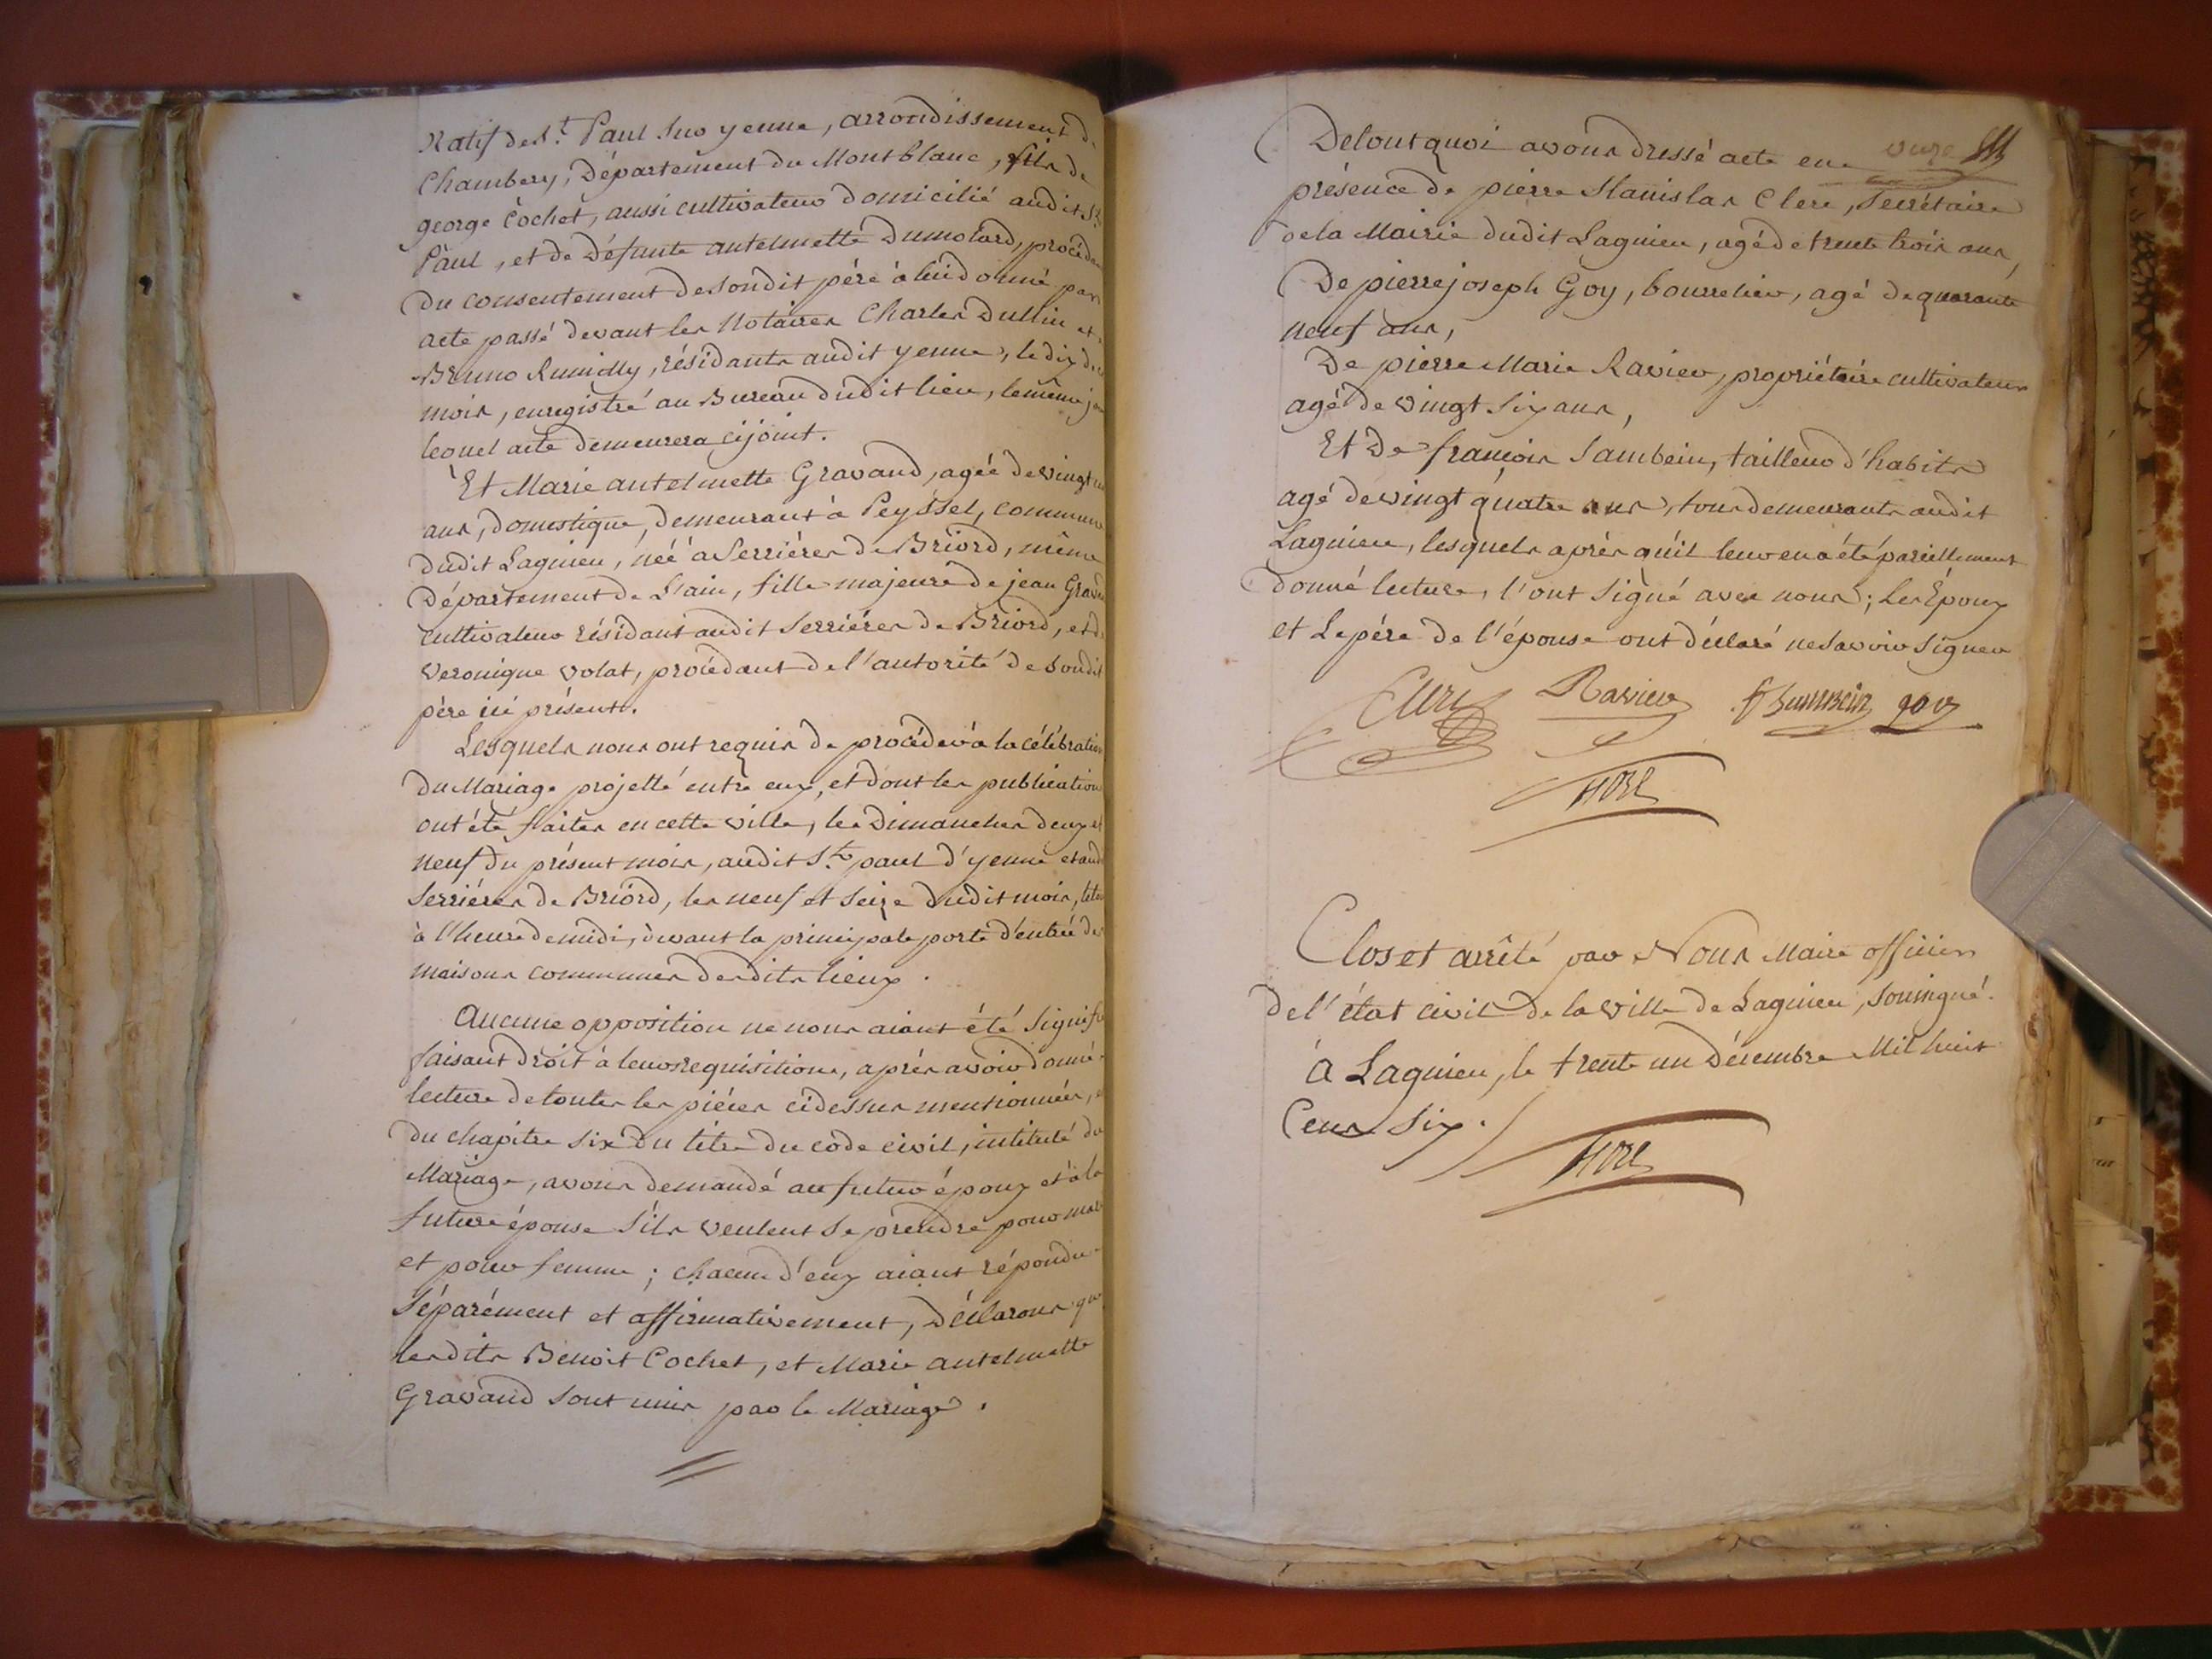 Natif de St. Paul sur yenne, arrondissement de
Chambery, Département du Montblanc, fils de
george Cochet, aussi cultivateur domicilié audit St.
Paul, et de défunte antelmette Dumolard, procédant
du consentement de sondit père à lui donné par
acte passé devant les Notaires Charles Dullin et
Bruno Rumilly, résidants audit yenne, le dix de ce
mois, enregistré au Bureau dudit lieu, le même jour
lequel acte demeurera cijoint.
Et Marie antelmette Gravand, agée de vingt
ans, domestique, demeurant à Peyssel, commune
dudit Lagnieu, néé à Serriéres de Briord, même
Département de L'ain, fille majeure de jean Gravand
cultivateur résidant audit Serriéres de Briord, et de
veronique volat, procédant de l'autorité de sondit
père ici présent.
Lesquels nous ont requis de procéder à la célébration
du Mariage projetté entre eux, et dont les publications
ont été faites en cette ville, les Dimanches deux et
neuf du présent mois, audit St. paul d'yenne et audit
Serriéres de Briord, les neuf et seize dudit mois,
à l'heure de midi, devant la principale porte d'entrée des
maisons communes desdits lieux.
Aucune opposition ne nous aiant été signif
faisant droit à leur requisition, après avoir donné
lecture de toutes les pièces cidessus mentionnées, et
du chapitre six du titre du code civil, intitulé du
Mariage, avons demandé au futur époux et à la
future épouse s'ils veulent se prendre pour mari
et pour femme ; chacun d'eux aiant répondu
séparément et affirmativement, Déclarons que
lesdits Benoit Cochet, et Marie antelmette
Gravand sont unis par le Mariage.
De tout quoi avons dressé acte en
présence de pierre Stanislas Clerc, Secrétaire
de la Mairie dudit Lagnieu, agé de trente trois ans,
De pierre joseph Goy, bourrelier, agé de quarante
neuf ans,
De pierre Marie Ravier, propriétaire cultivateur
agé de vingt six ans,
Et De françois Sambein, tailleur d'habits
agé de vingt quatre ans, tous demeurants audit
Lagnieu, lesquels après qu'il leur en a été pareillement
donné lecture, l'ont signé avec nous ; Les Époux
et Le pére de l'épouse ont déclaré ne savoir signer
Clerc Ravier f Sambein goy
Clos et arrêté par Nous Maire officier
de l'état civil de la ville de Lagnieu, soussigné.
à Lagnieu, le trente un Décembre Mil huit
Cens six.